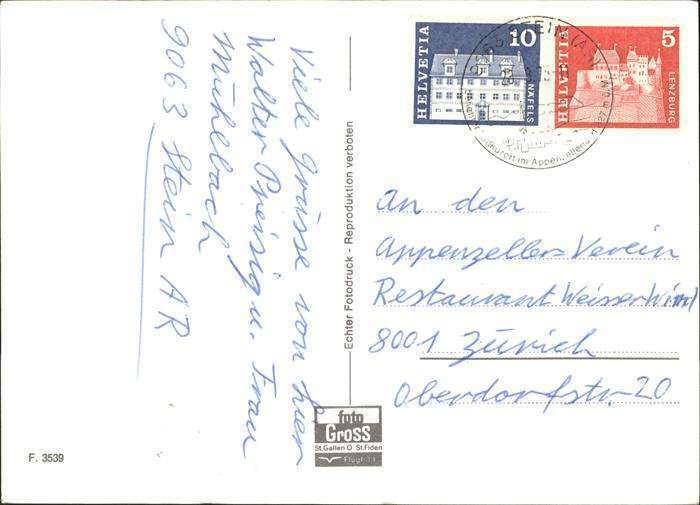 Viele Grüsse von hier
Walter Preisig u. Frau
Mühlbach
9063 Stein AR
Echter Fotodruck - Reproduktion verboten
HELVETIA
10
NÄFELS
HELVETIA
5
LENZBURG
9063 STEIN (AR)
Kurort im Appenzellerland
An den
Appenzeller=Verein
Restaurant Weisser Wind
8001 Zürich
Oberdorfstr. 20
foto
Gross
St.Gallen O St.Fiden
F. 3539